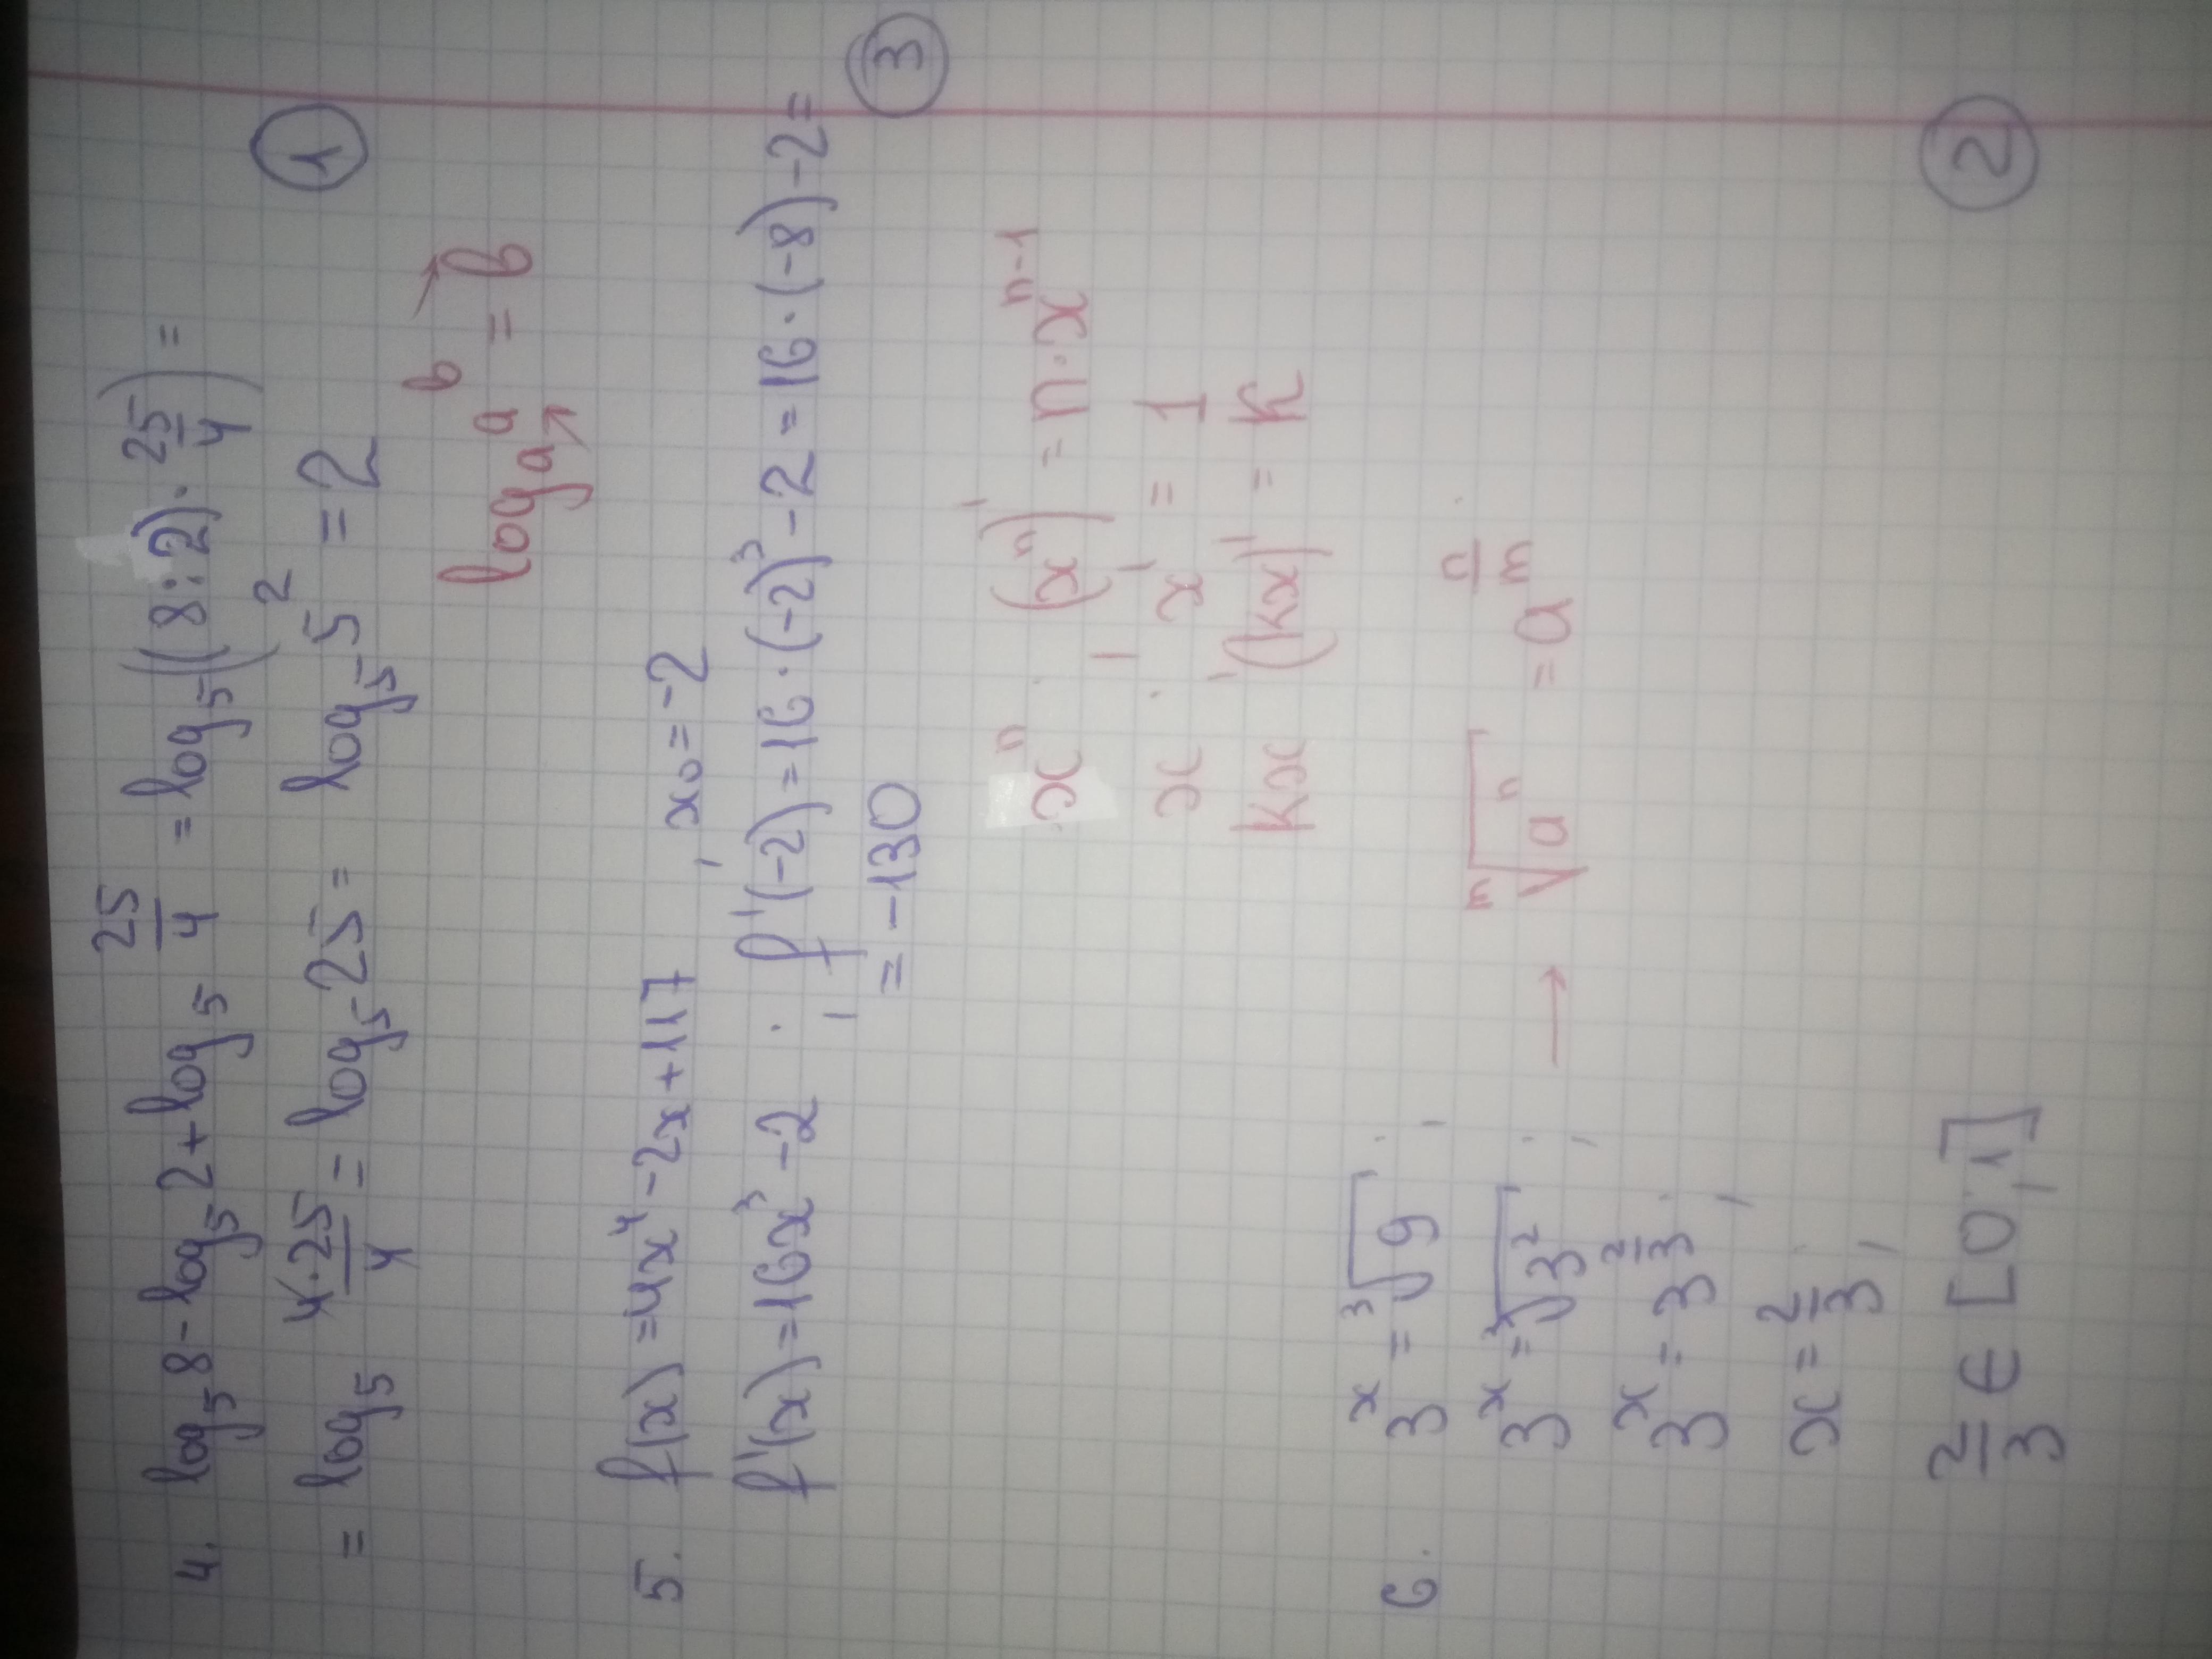 4. log₅8 - log₅2 + log₅ 25/4 = log₅((8:2)·25/4) =
= log₅ 4·25/4 = log₅25 = log₅5² = 2 ①
logₐaᵇ = b
5. f(x) = 4x⁴ - 2x + 117, x₀ = -2
f'(x) = 16x³ - 2; f'(-2) = 16·(-2)³ - 2 = 16·(-8) - 2 =
= -130 ③
xⁿ; (xⁿ)' = n·xⁿ⁻¹
x; x' = 1
kx; (kx)' = k
6. 3ˣ = ³√9;
3ˣ = ³√3²; → ᵐ√aⁿ = a^(n/m)
3ˣ = 3^(2/3);
x = 2/3;
2/3 ∈ [0;1] ②